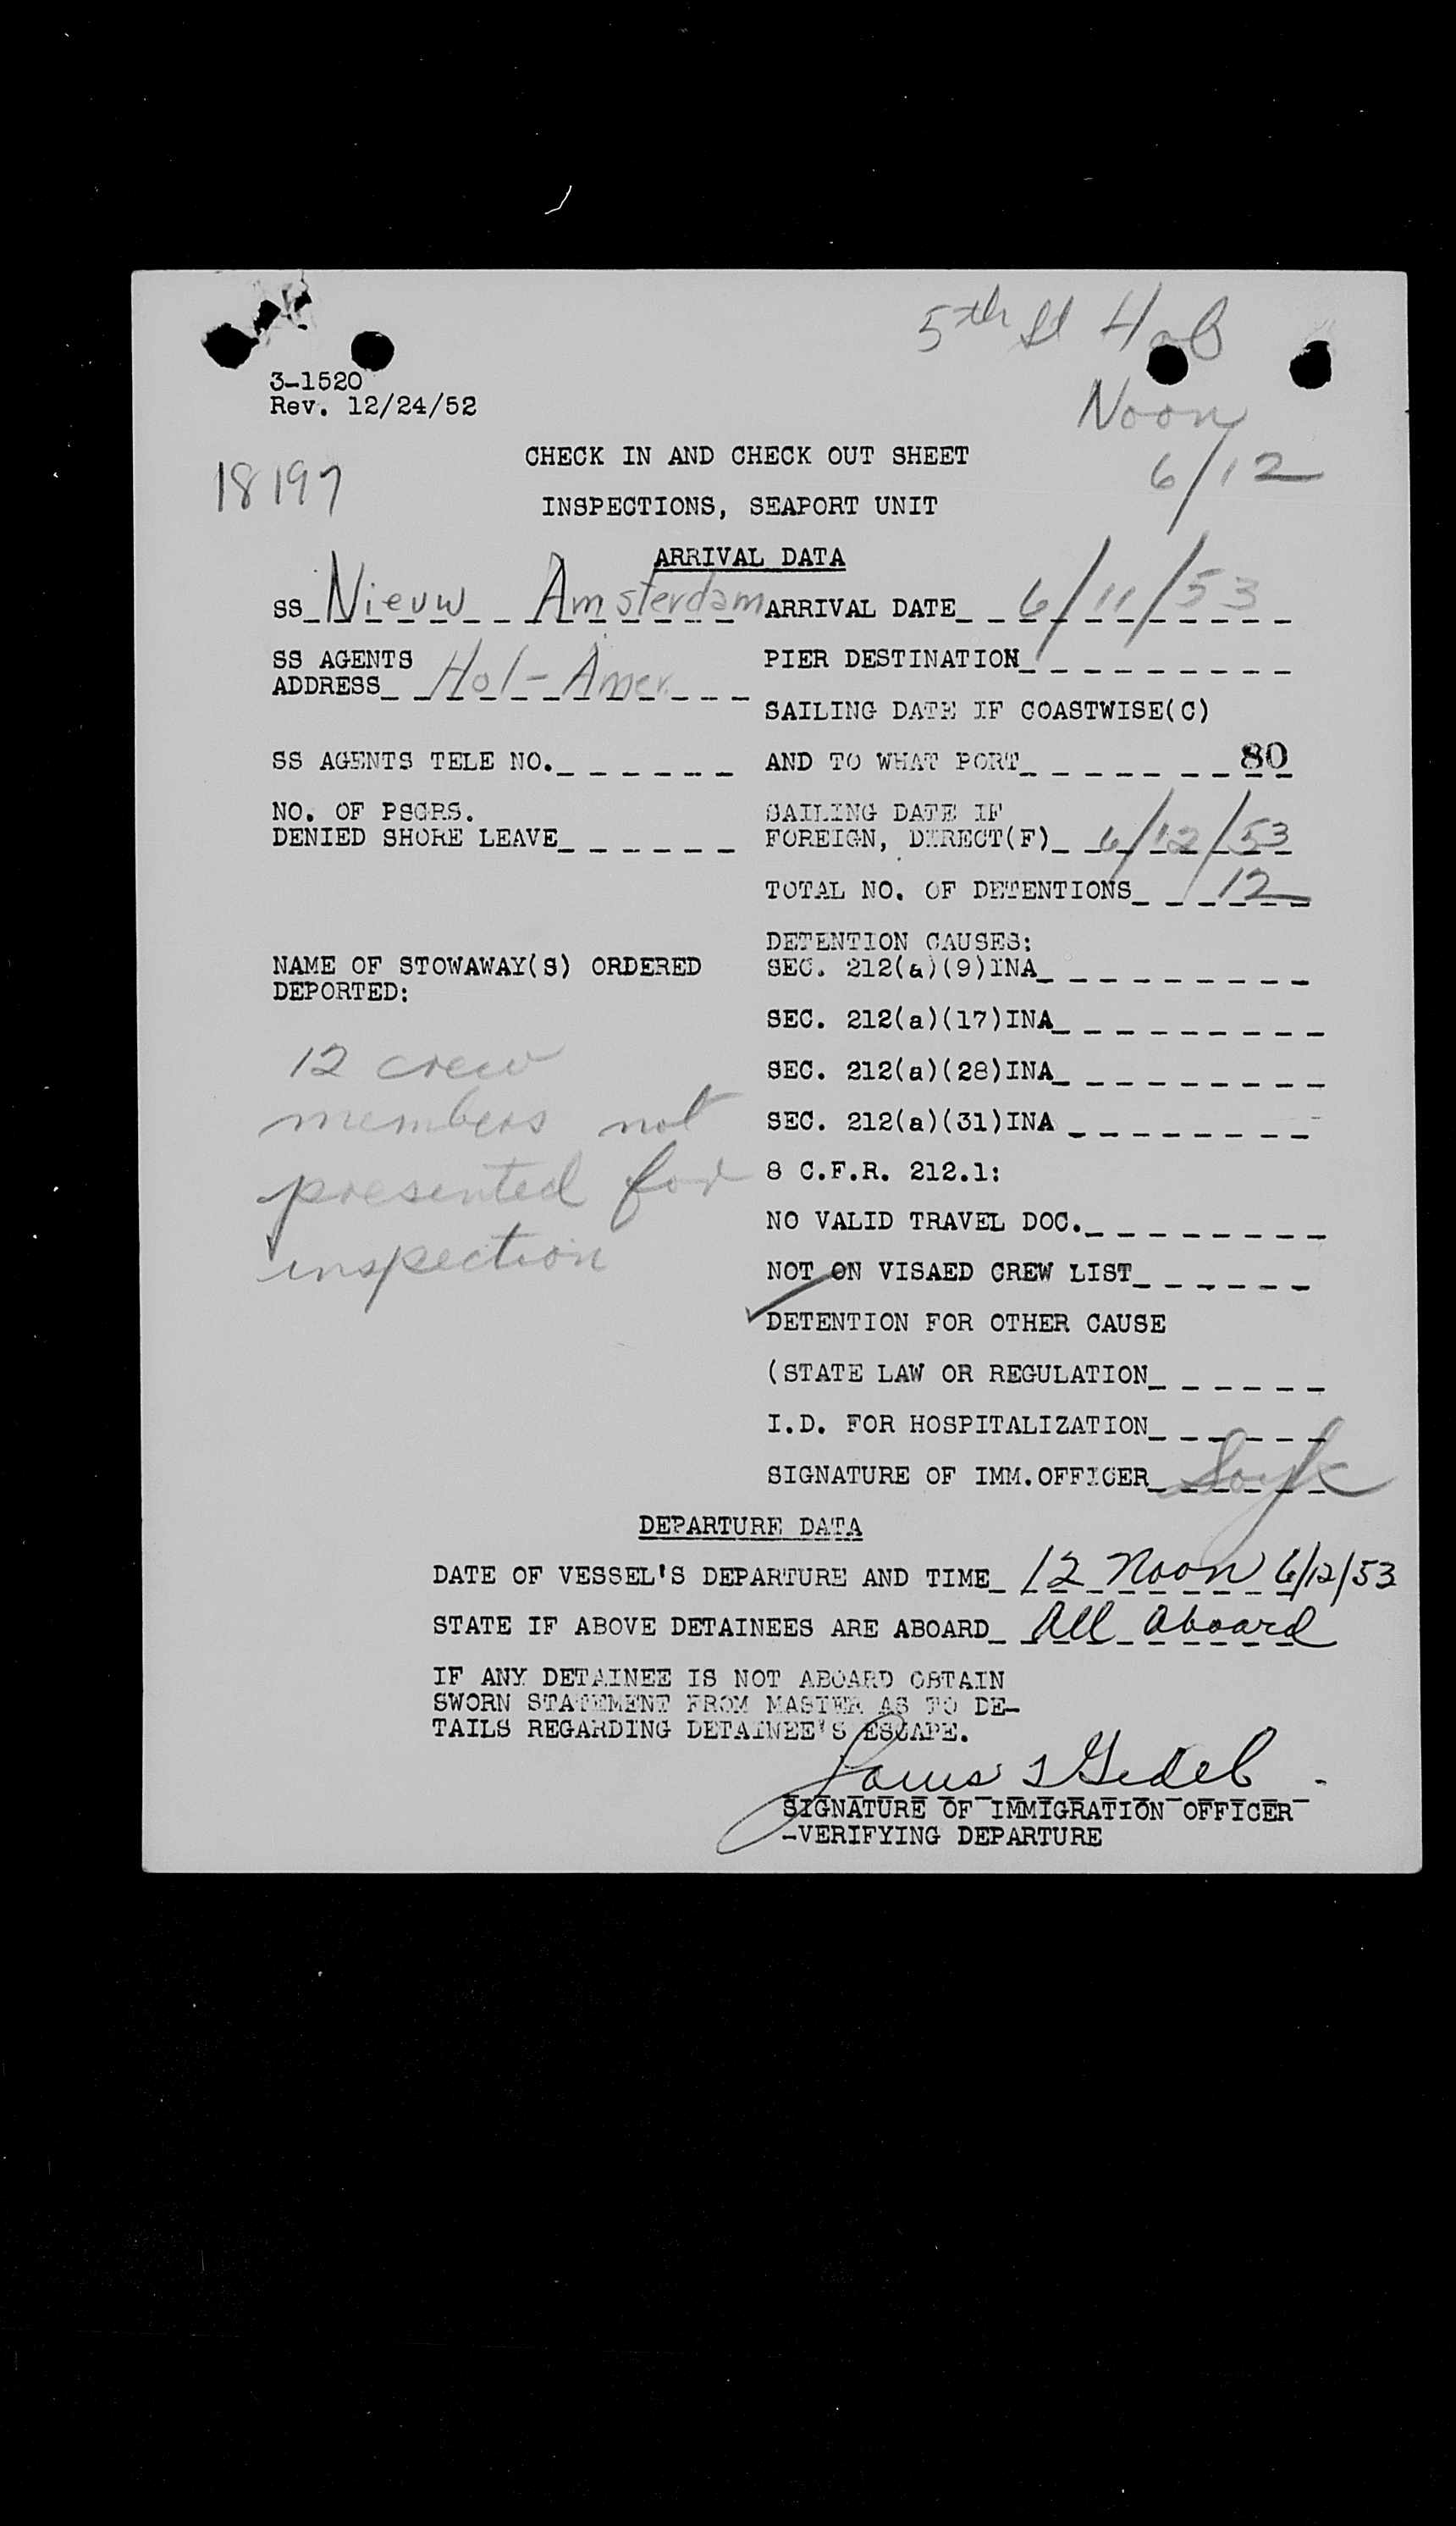 5th St Hob
Noon
6/12
3-1520
Rev. 12/24/52
18197
CHECK IN AND CHECK OUT SHEET
INSPECTIONS, SEAPORT UNIT
ARRIVAL DATA
SS Nieuw Amsterdam ARRIVAL DATE 6/11/53
SS AGENTS
ADDRESS Hol-Amer.
PIER DESTINATION
SAILING DATE IF COASTWISE(C)
SS AGENTS TELE NO.
AND TO WHAT PORT 80
NO. OF PSGRS.
DENIED SHORE LEAVE
SAILING DATE IF
FOREIGN, DIRECT(F) 6/12/53
TOTAL NO. OF DETENTIONS 12
NAME OF STOWAWAY(S) ORDERED
DEPORTED:
12 crew
members not
presented for
inspection
DETENTION CAUSES:
SEC. 212(a)(9)INA
SEC. 212(a)(17)INA
SEC. 212(a)(28)INA
SEC. 212(a)(31)INA
8 C.F.R. 212.1:
NO VALID TRAVEL DOC.
NOT ON VISAED CREW LIST
✓ DETENTION FOR OTHER CAUSE
(STATE LAW OR REGULATION
I.D. FOR HOSPITALIZATION
SIGNATURE OF IMM.OFFICER
DEPARTURE DATA
DATE OF VESSEL'S DEPARTURE AND TIME 12 Noon 6/12/53
STATE IF ABOVE DETAINEES ARE ABOARD All aboard
IF ANY DETAINEE IS NOT ABOARD OBTAIN
SWORN STATEMENT FROM MASTER AS TO DE-
TAILS REGARDING DETAINEE'S ESCAPE.
Louis
SIGNATURE OF IMMIGRATION OFFICER
-VERIFYING DEPARTURE